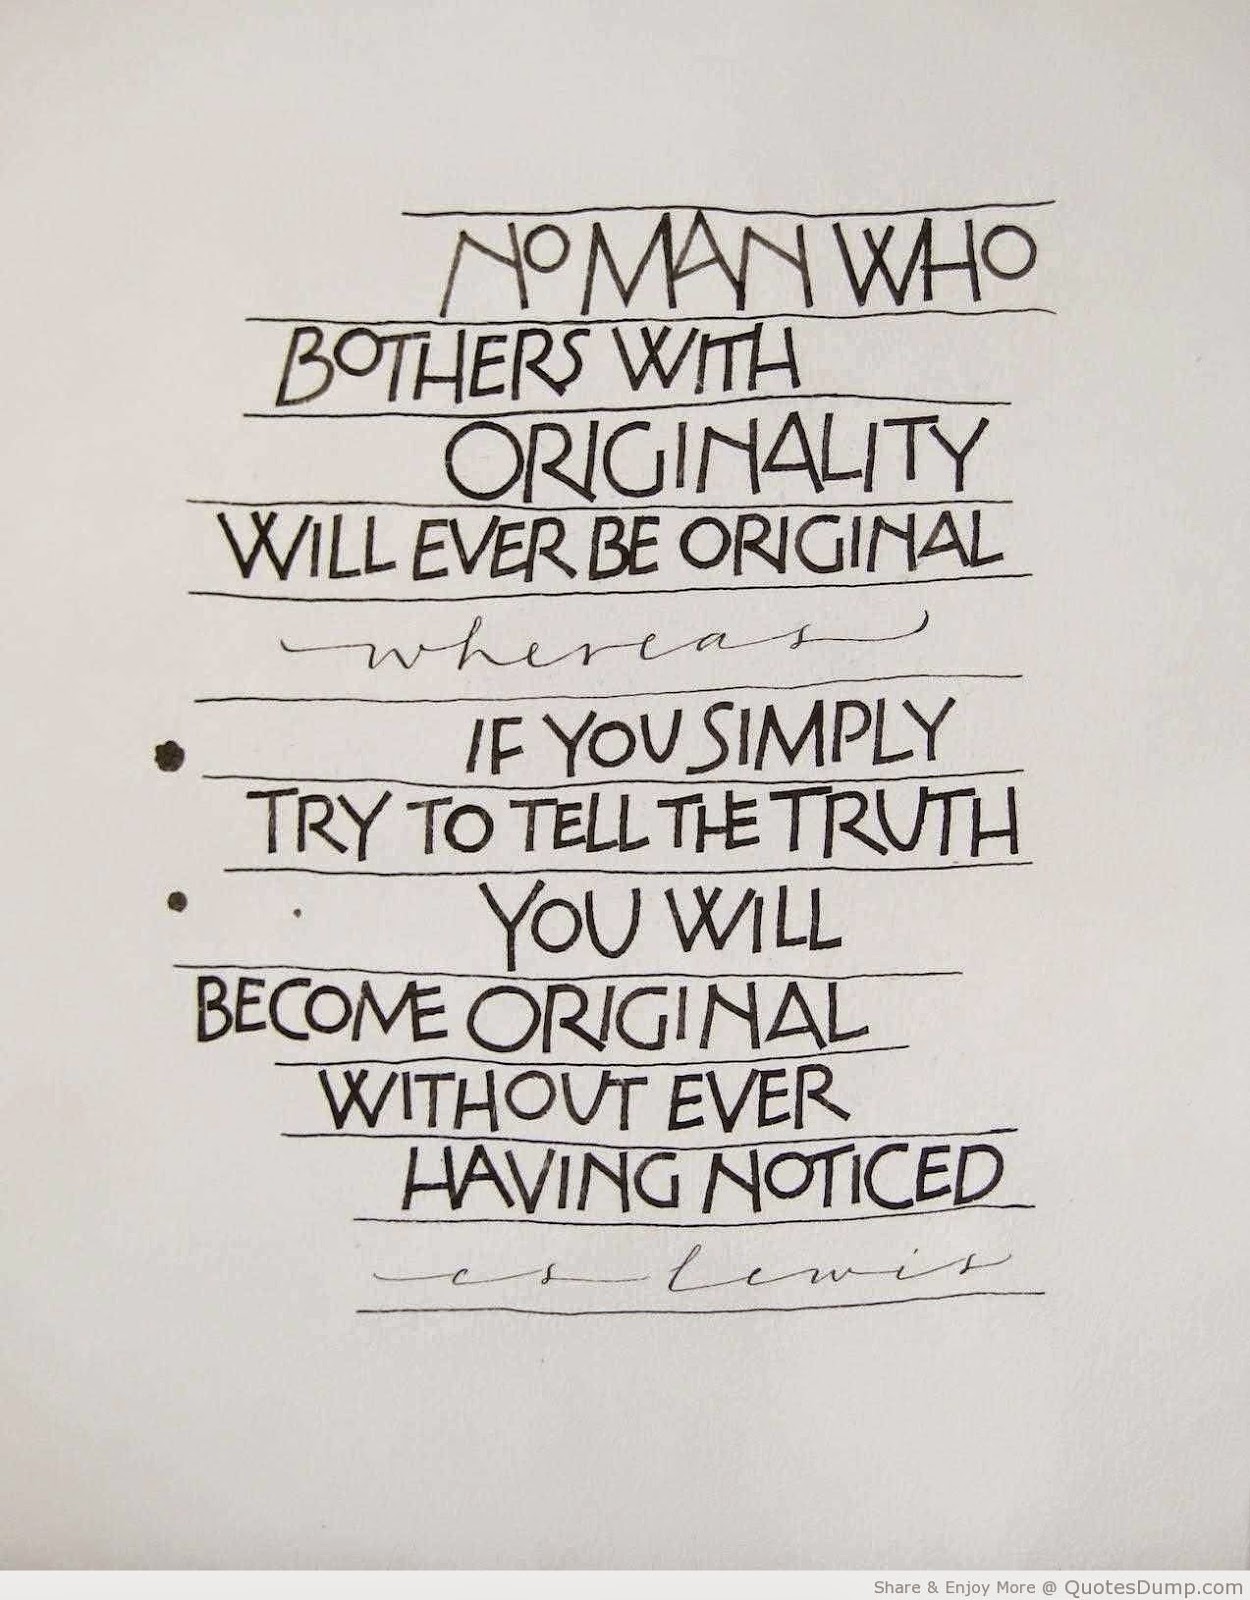 NO MAN WHO
BOTHERS WITH
ORIGINALITY
WILL EVER BE ORIGINAL
whereas
IF YOU SIMPLY
TRY TO TELL THE TRUTH
YOU WILL
BECOME ORIGINAL
WITHOUT EVER
HAVING NOTICED
cs lewis
Share & Enjoy More @ QuotesDump.com